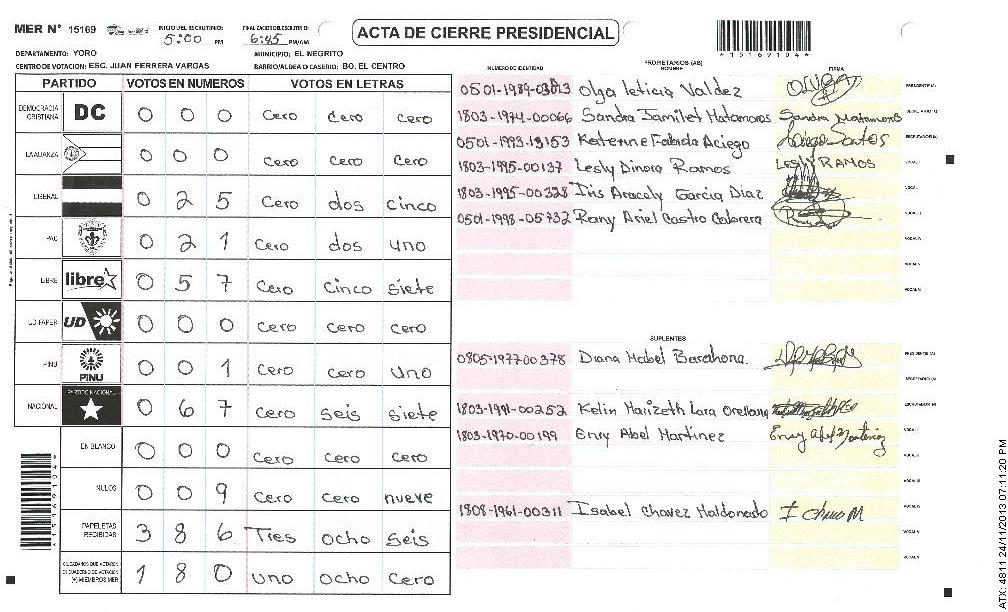 MER N° 15169 INICIO DEL ESCRUTINIO: 5:00 PM FINALIZACION DEL ESCRUTINIO: 6:45 PM/AM
ACTA DE CIERRE PRESIDENCIAL
DEPARTAMENTO: YORO MUNICIPIO: EL NEGRITO
CENTRO DE VOTACION: ESC. JUAN FERRERA VARGAS BARRIO/ALDEA O CASERIO: BO. EL CENTRO
PARTIDO VOTOS EN NUMEROS VOTOS EN LETRAS
DEMOCRACIA CRISTIANA DC 0 0 0 Cero cero cero
LA ALIANZA 0 0 0 Cero Cero Cero
LIBERAL 0 2 5 Cero dos cinco
PAC 0 2 1 Cero dos uno
LIBRE libre 0 5 7 Cero Cinco siete
UD-FAPER UD 0 0 0 Cero Cero Cero
PINU PINU 0 0 1 Cero Cero Uno
NACIONAL PARTIDO NACIONAL 0 6 7 Cero seis siete
EN BLANCO 0 0 0 Cero Cero Cero
NULOS 0 0 9 Cero Cero nueve
PAPELETAS RECIBIDAS 3 8 6 Tres ocho seis
CIUDADANOS QUE VOTARON EN CUADERNO DE VOTACION (+) MIEMBROS MER 1 8 0 uno ocho Cero
*15169104*
PROPIETARIOS (AS)
NUMERO DE IDENTIDAD NOMBRE FIRMA
Olga leticia Valdez PRESIDENTE (A)
1803-1974-00066 Sandra Jamilet Matamoros Sandra Matamoros
0501-1993-13153 Aciego ESCRUTADOR (A)
1803-1995-00137 Lesly Dinora Ramos LESLY RAMOS VOCAL I
1803-1995-00328 Iris Aracaly Garcia Diaz VOCAL
0501-1998-05732 Rony Ariel Castro Cabrera VOCAL III
VOCAL IV
VOCAL V
VOCAL VI
SUPLENTES
0805-1977-00378 Diana Mabel Barahona PRESIDENTE (A)
SECRETARIO (A)
1803-1991-00252 Kelin Marizeth Lara Orellana ESCRUTADOR (A)
1803-1970-00199 Enry Abel Martinez VOCAL I
VOCAL II
VOCAL III
1808-1961-00311 Isabel Chavez Maldonado VOCAL IV
VOCAL V
VOCAL VI
ATX: 4811 24/11/2013 07:11:20 PM